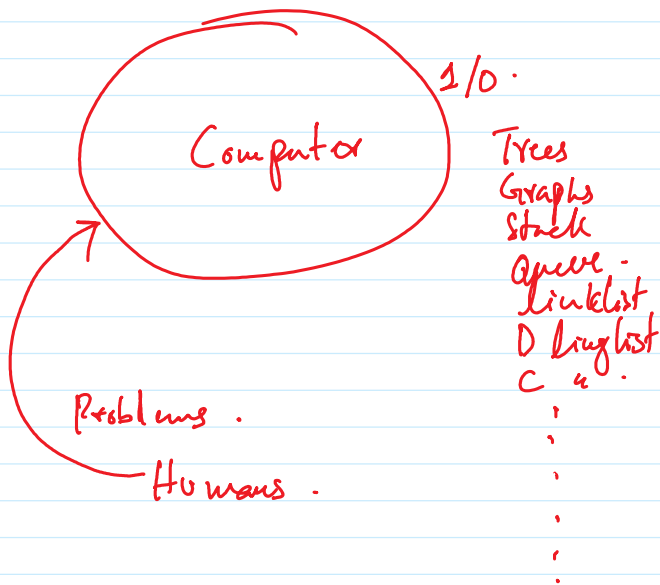 1/0.
Computer
Trees
Graphs
Stack
Queue.
linklist
D linklist
C " .
Problems.
Humans.